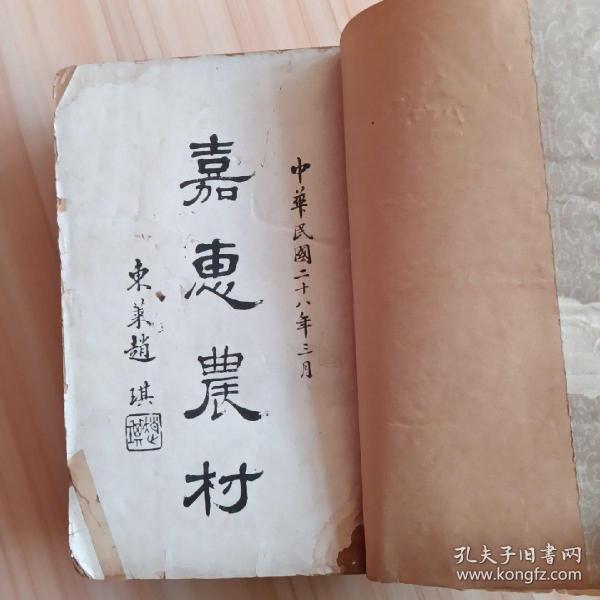 中華民國二十八年三月
嘉惠農村
東萊趙琪
孔夫子旧書网
www.kongfz.com